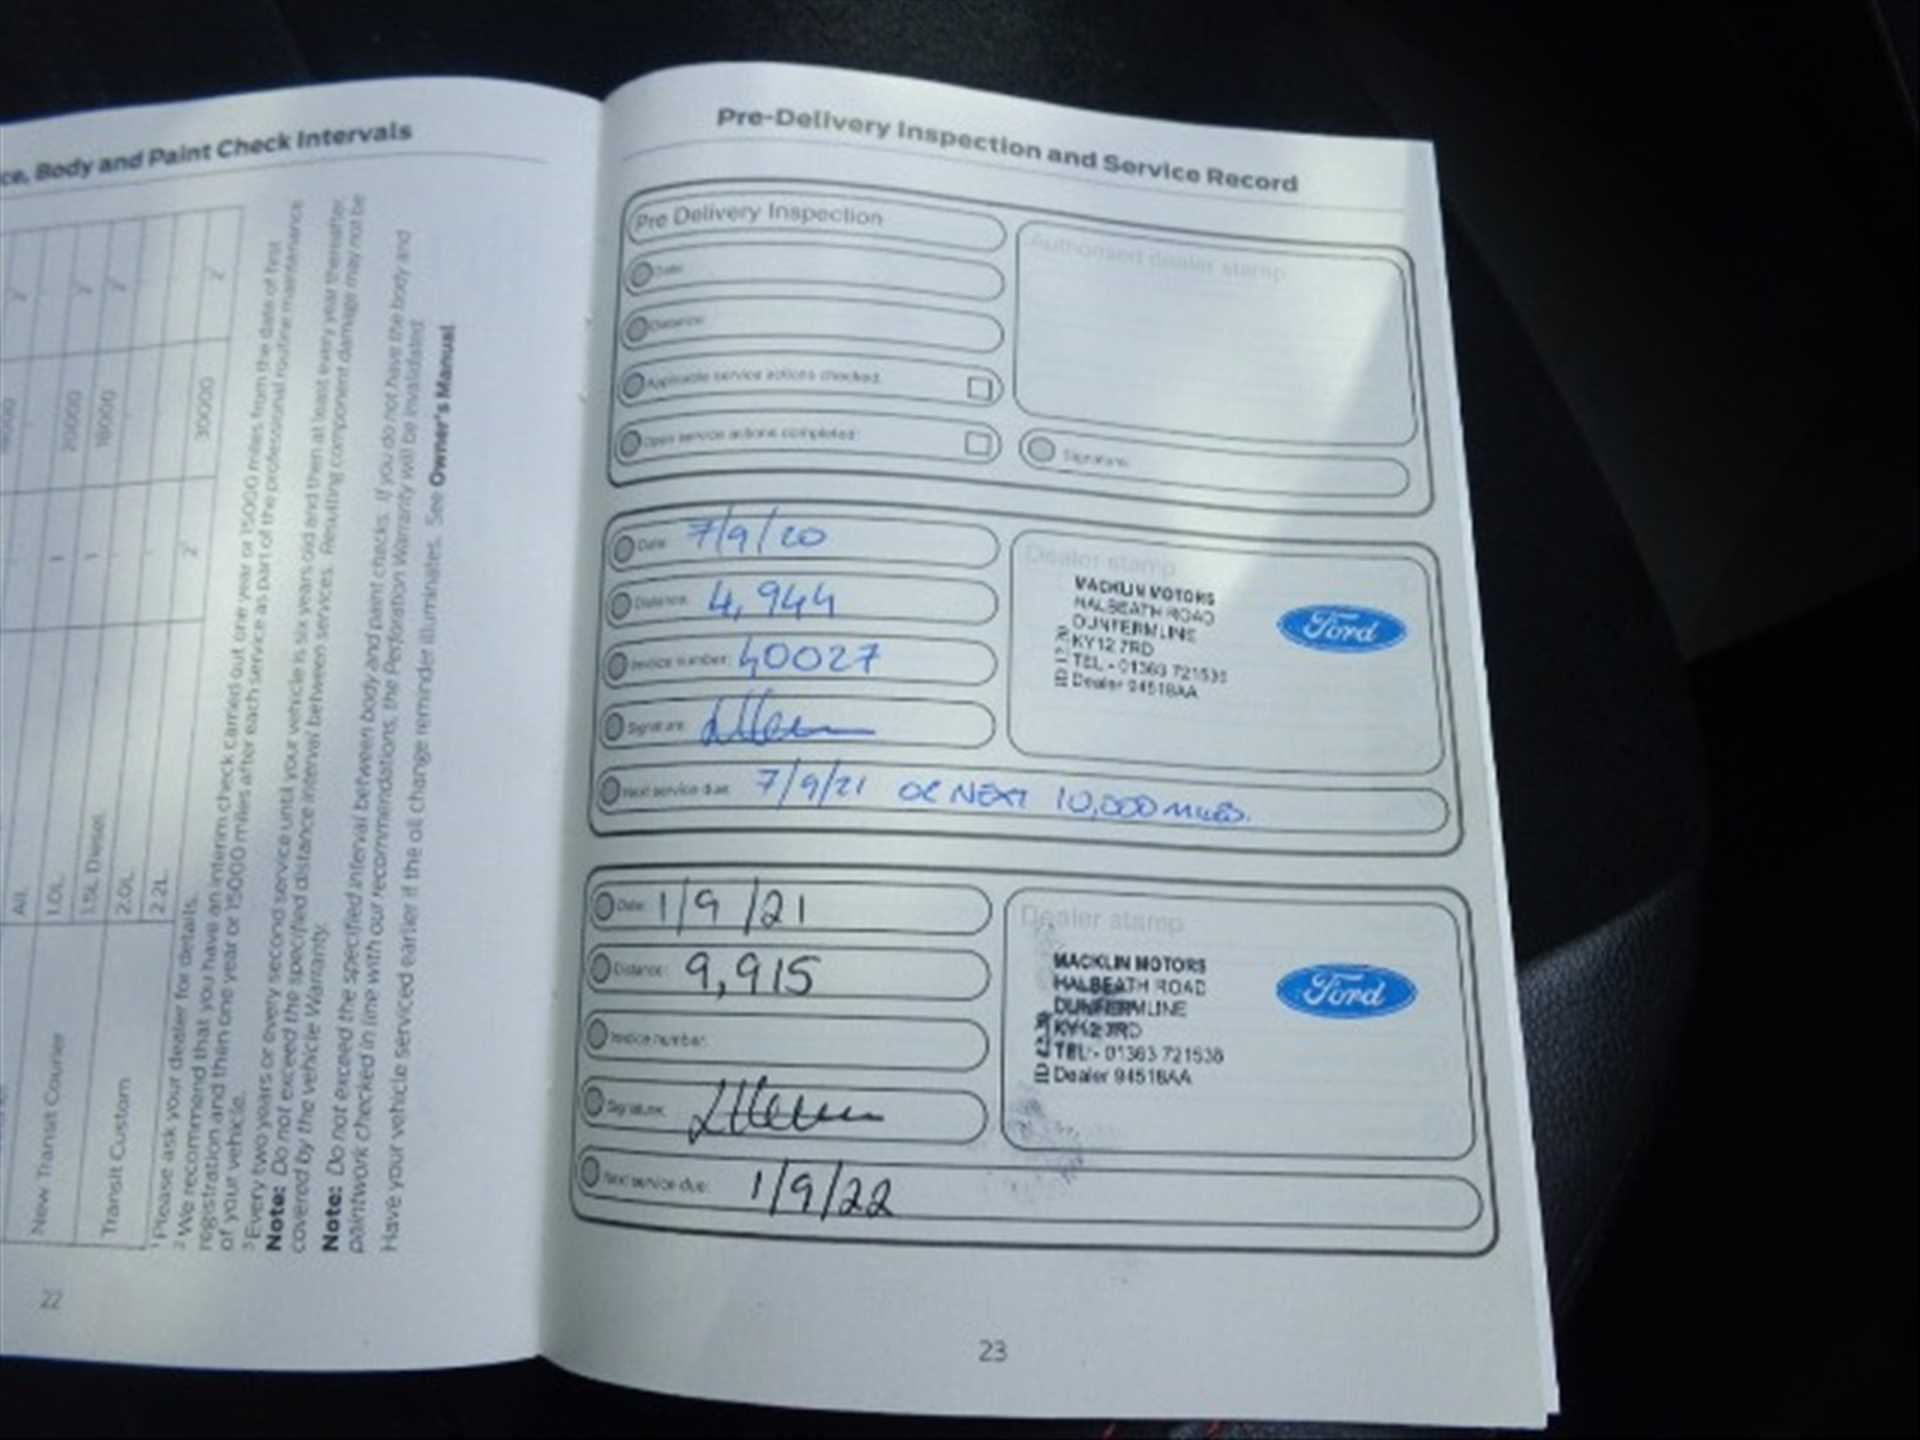 ce, Body and Paint Check Intervals
All
New Transit Courier
1.0L
1
20000
1.5L Diesel
1
18000
Transit Custom
2.0L
2.2L
2
30000
1 Please ask your dealer for details.
2 We recommend that you have an interim check carried out one year or 15000 miles from the date of first
registration and then one year or 15000 miles after each service as part of the professional routine maintenance
of your vehicle.
3 Every two years or every second service until your vehicle is six years old and then at least every year thereafter.
Note: Do not exceed the specified distance interval between services. Resulting component damage may not be
covered by the vehicle Warranty.
Note: Do not exceed the specified interval between body and paint checks. If you do not have the body and
paintwork checked in line with our recommendations, the Perforation Warranty will be invalidated.
Have your vehicle serviced earlier if the oil change reminder illuminates. See Owner's Manual.
22
Pre-Delivery Inspection and Service Record
Pre Delivery Inspection
Authorised dealer stamp
Date:
Distance:
Applicable service actions checked:
Open service actions completed:
Signature:
Date: 7/9/20
Distance: 4,944
Invoice number: 40027
Signature:
Dealer stamp
MACKLIN MOTORS
HALBEATH ROAD
DUNFERMLINE
KY12 7RD
TEL - 01383 721536
Dealer 94518AA
Ford
Next service due: 7/9/21 OR NEXT 10,000 MILES.
Date: 1/9/21
Distance: 9,915
Invoice number:
Signature:
Dealer stamp
MACKLIN MOTORS
HALBEATH ROAD
DUNFERMLINE
KY12 7RD
TEL - 01383 721536
Dealer 94518AA
Ford
Next service due: 1/9/22
23